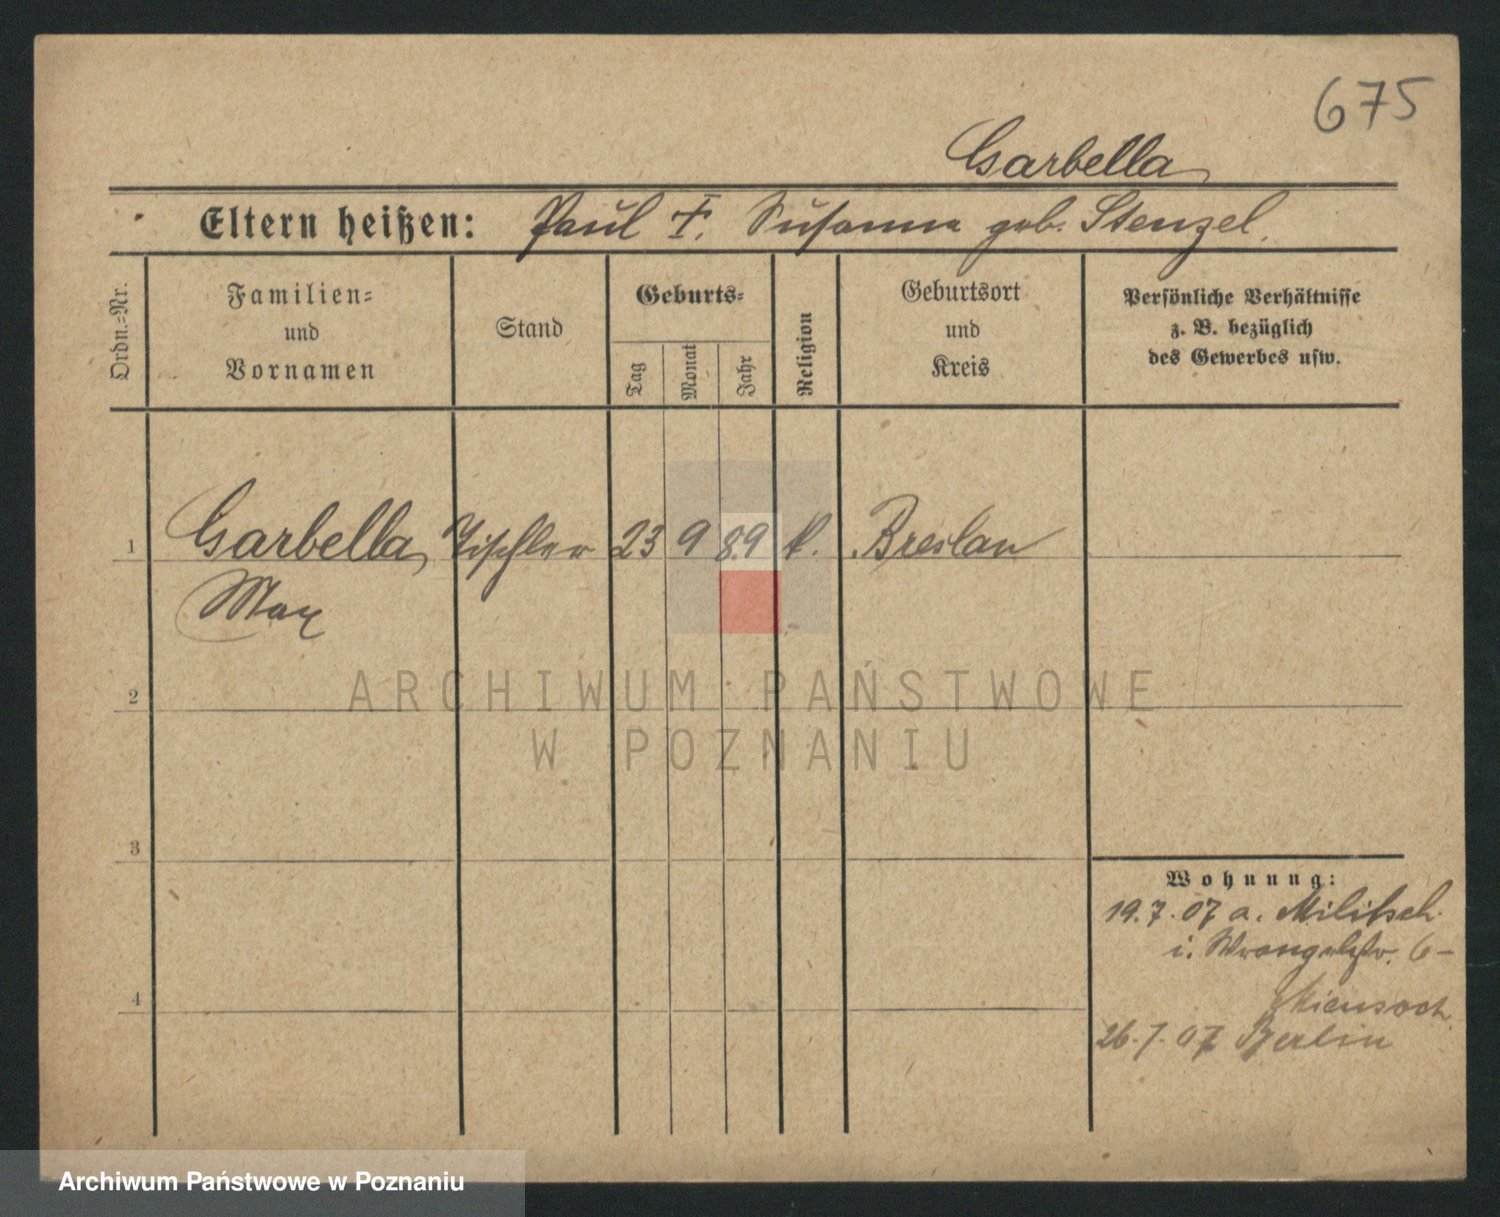 675
Garbella
Eltern heißen: Paul †. Susanna geb. Stenzel.
Ordn.-Nr.
Familien-
und
Vornamen
Stand
Geburts-
Tag
Monat
Jahr
Religion
Geburtsort
und
Kreis
Persönliche Verhältnisse
z. B. bezüglich
des Gewerbes usw.
1 Garbella, Tischler 23 9 89 k. Breslau
Max
2
3
4
Wohnung:
19.7.07 a. Militsch
i. Wrangelstr. 6-
26.7.07 Berlin
ARCHIWUM PAŃSTWOWE
W POZNANIU
Archiwum Państwowe w Poznaniu